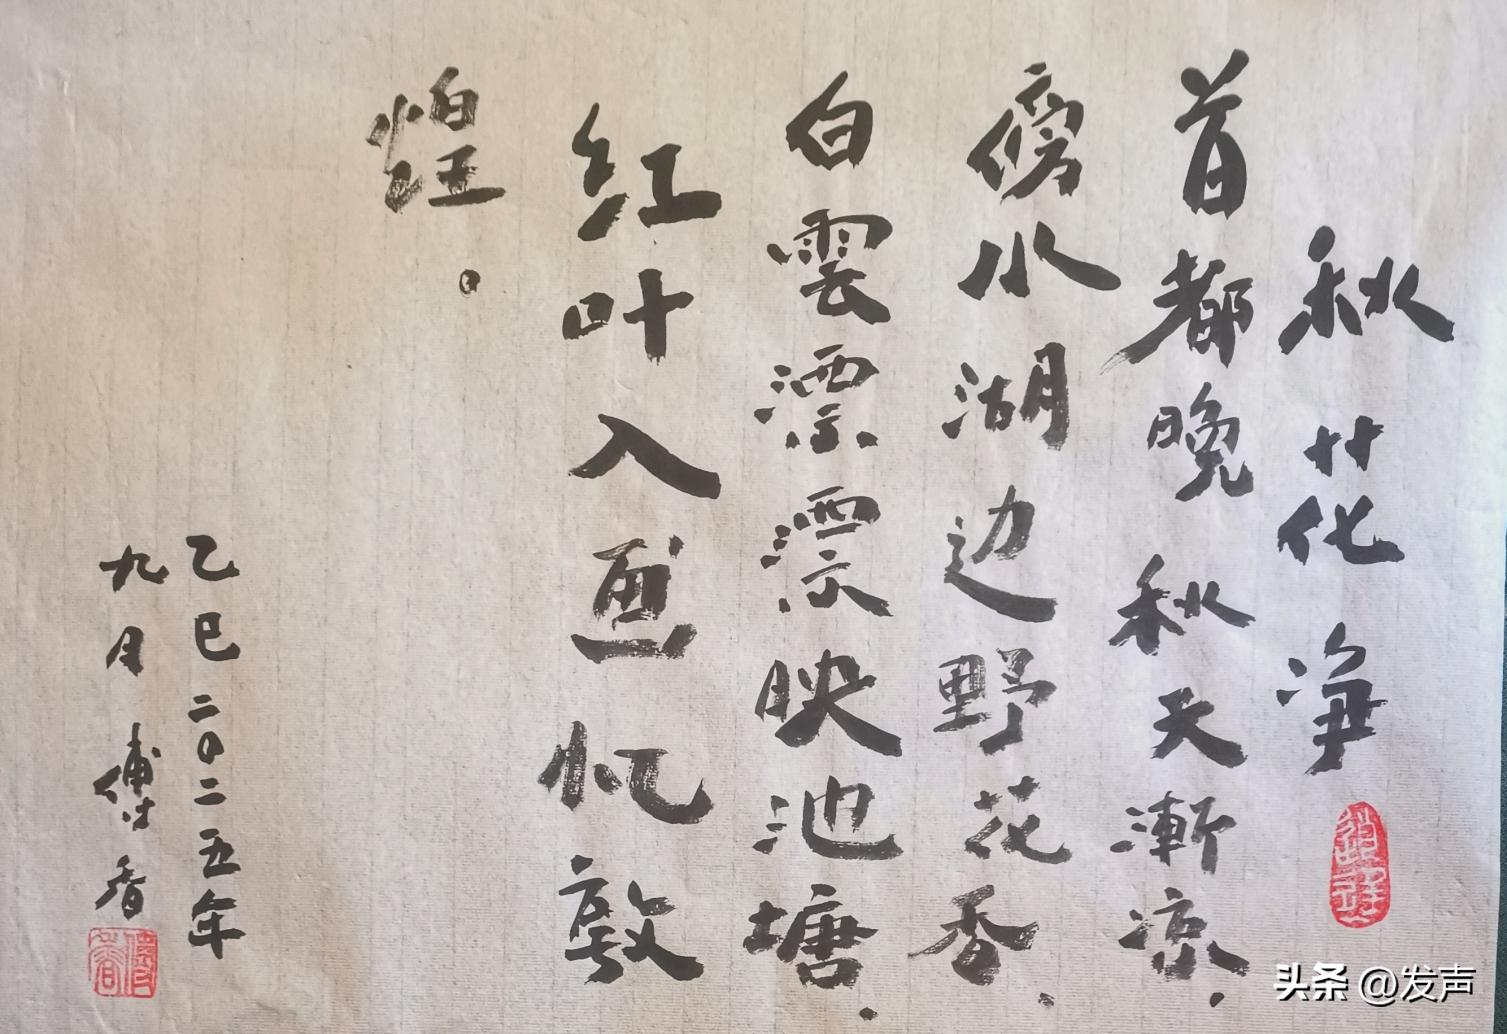 秋花净
首都晚秋天漸凉，
傍水湖边野花香，
白雲漂漂映池塘，
红叶入画忆敦
煌。
乙巳二〇二五年
九月傅香
头条 @发声